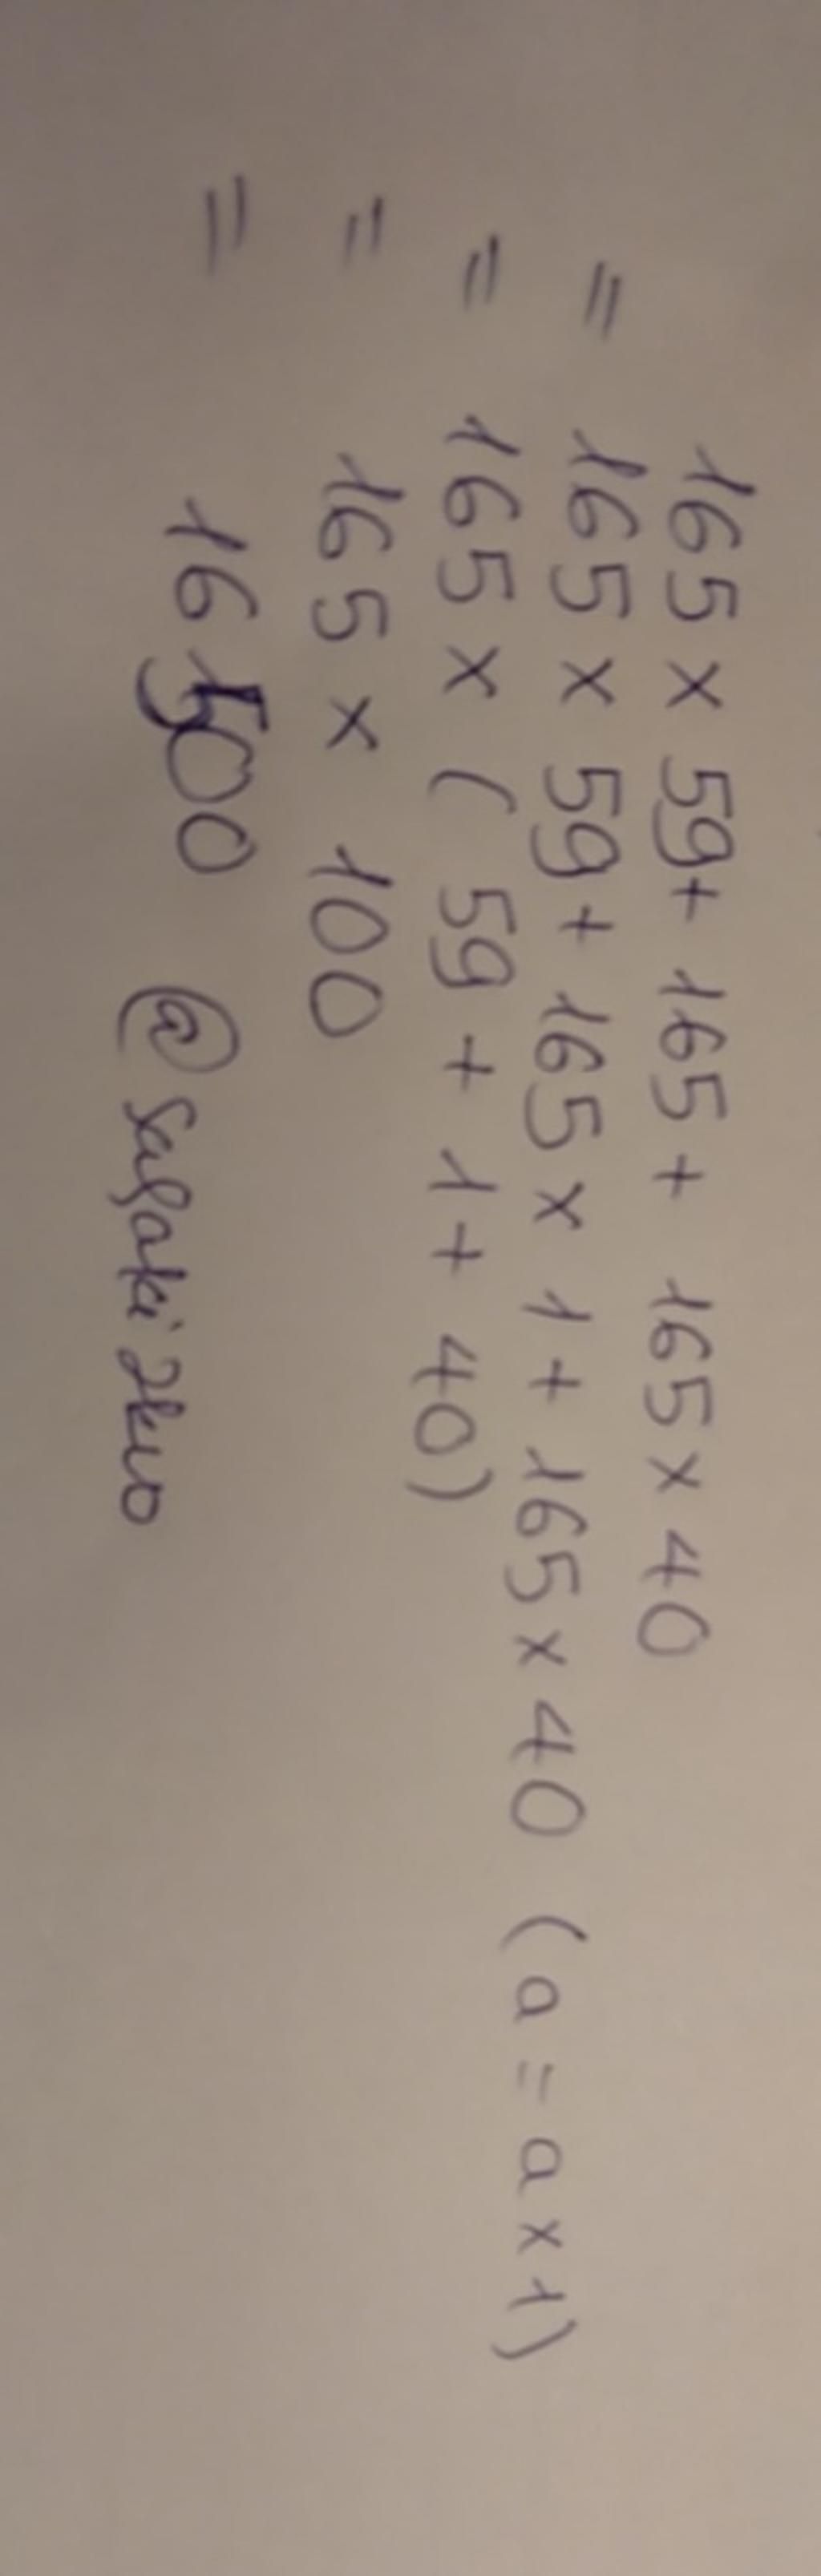 165 x 59 + 165 + 165 x 40
= 165 x 59 + 165 x 1 + 165 x 40 (a = a x 1)
= 165 x ( 59 + 1 + 40)
= 165 x 100
= 16500 @ sasaki2kuo